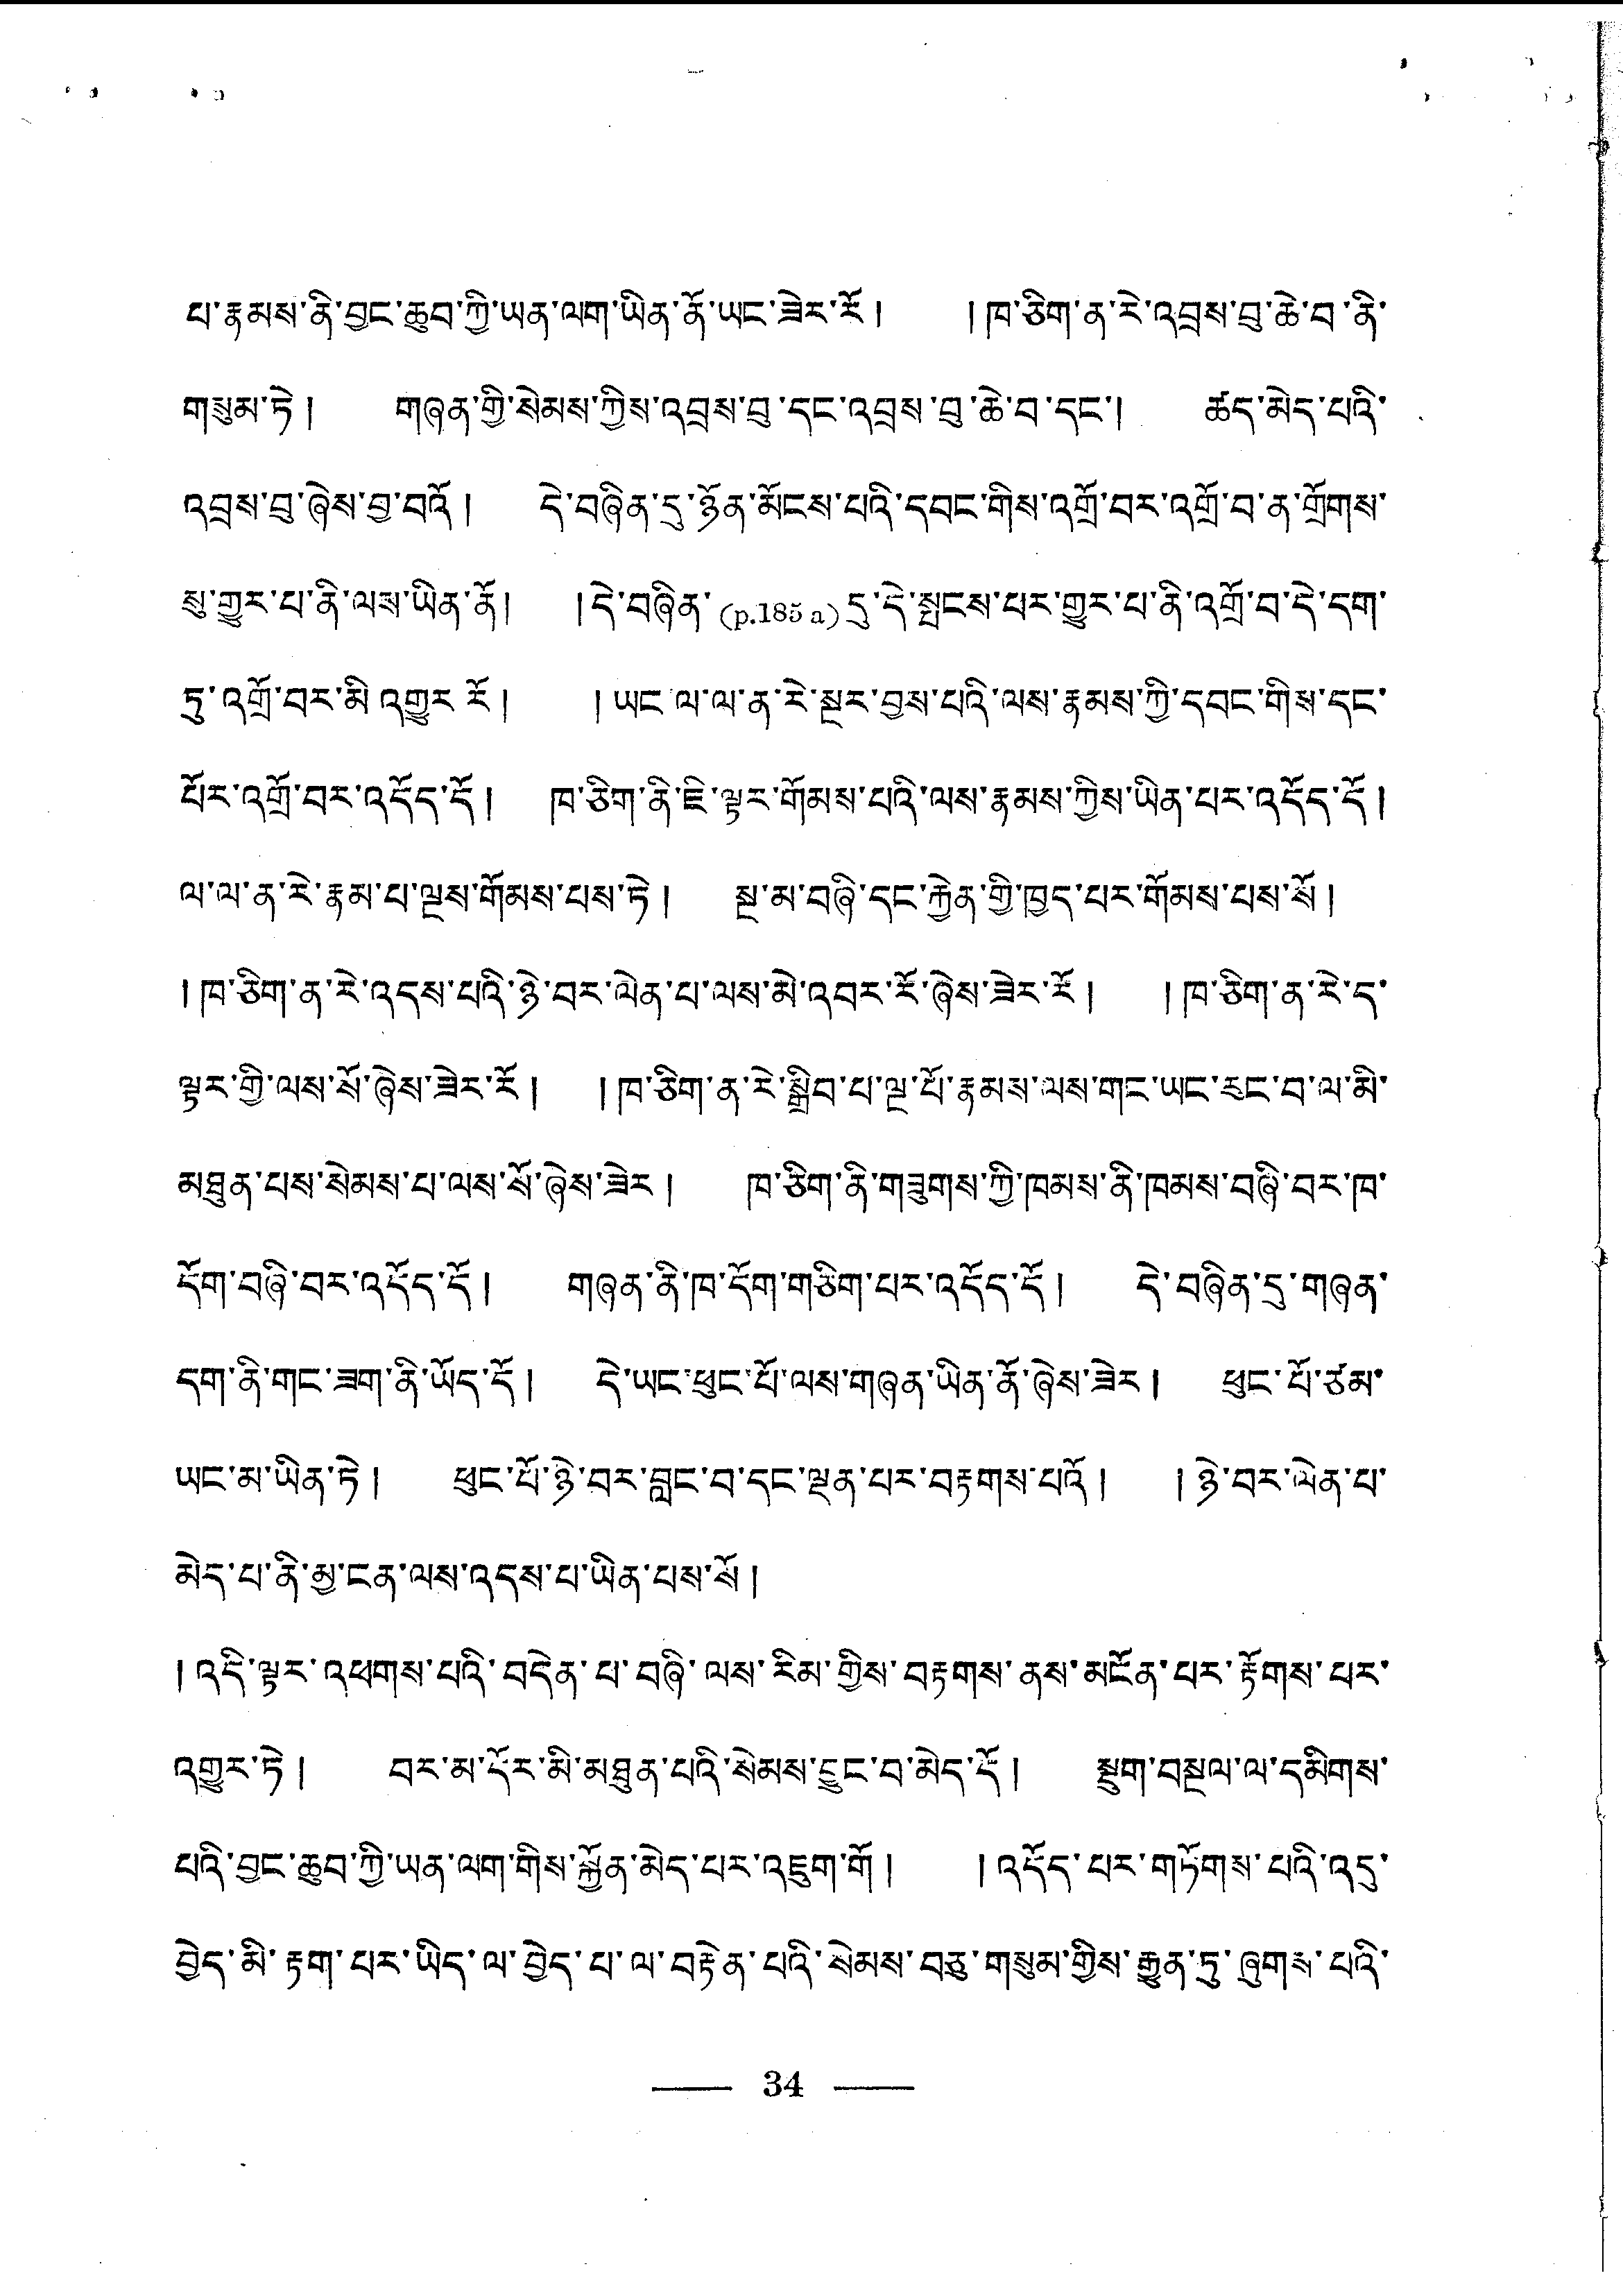 པ་རྣམས་ནི་བྱང་ཆུབ་ཀྱི་ཡན་ལག་ཡིན་ནོ་ཡང་ཟེར་རོ། །ཁ་ཅིག་ན་རེ་འབྲས་བུ་ཆེ་བ་ནི་
གསུམ་ཏེ། གཞན་གྱི་སེམས་ཀྱིས་འབྲས་བུ་དང་འབྲས་བུ་ཆེ་བ་དང་། ཚད་མེད་པའི་
འབྲས་བུ་ཞེས་བྱ་བའོ། དེ་བཞིན་དུ་ཉོན་མོངས་པའི་དབང་གིས་འགྲོ་བར་འགྲོ་བ་ན་གྲོགས་
སུ་གྱུར་པ་ནི་ལས་ཡིན་ནོ། །དེ་བཞིན་ (p.185 a) དུ་དེ་སྤངས་པར་གྱུར་པ་ནི་འགྲོ་བ་དེ་དག་
ཏུ་འགྲོ་བར་མི་འགྱུར་རོ། །ཡང་ལ་ལ་ན་རེ་སྔར་བྱས་པའི་ལས་རྣམས་ཀྱི་དབང་གིས་དང་
པོར་འགྲོ་བར་འདོད་དོ། ཁ་ཅིག་ནི་ཇི་ལྟར་གོམས་པའི་ལས་རྣམས་ཀྱིས་ཡིན་པར་འདོད་དོ།
ལ་ལ་ན་རེ་རྣམ་པ་ལྔས་གོམས་པས་ཏེ། སྔ་མ་བཞི་དང་རྐྱེན་གྱི་ཁྱད་པར་གོམས་པས་སོ།
།ཁ་ཅིག་ན་རེ་འདས་པའི་ཉེ་བར་ལེན་པ་ལས་མེ་འབར་རོ་ཞེས་ཟེར་རོ། །ཁ་ཅིག་ན་རེ་ད་
ལྟར་གྱི་ལས་སོ་ཞེས་ཟེར་རོ། །ཁ་ཅིག་ན་རེ་སྒྲིབ་པ་ལྔ་པོ་རྣམས་ལས་གང་ཡང་རུང་བ་ལ་མི་
མཐུན་པས་སེམས་པ་ལས་སོ་ཞེས་ཟེར། ཁ་ཅིག་ནི་གཟུགས་ཀྱི་ཁམས་ནི་ཁམས་བཞི་བར་ཁ་
དོག་བཞི་བར་འདོད་དོ། གཞན་ནི་ཁ་དོག་གཅིག་པར་འདོད་དོ། དེ་བཞིན་དུ་གཞན་
དག་ནི་གང་ཟག་ནི་ཡོད་དོ། དེ་ཡང་ཕུང་པོ་ལས་གཞན་ཡིན་ནོ་ཞེས་ཟེར། ཕུང་པོ་ཙམ་
ཡང་མ་ཡིན་ཏེ། ཕུང་པོ་ཉེ་བར་བླང་བ་དང་ལྡན་པར་བརྟགས་པའོ། །ཉེ་བར་ལེན་པ་
མེད་པ་ནི་མྱ་ངན་ལས་འདས་པ་ཡིན་པས་སོ།
།འདི་ལྟར་འཕགས་པའི་བདེན་པ་བཞི་ལས་རིམ་གྱིས་བརྟགས་ནས་མངོན་པར་རྟོགས་པར་
འགྱུར་ཏེ། བར་མ་དོར་མི་མཐུན་པའི་སེམས་དྲུང་བ་མེད་དོ། སྡུག་བསྔལ་ལ་དམིགས་
པའི་བྱང་ཆུབ་ཀྱི་ཡན་ལག་གིས་སྐྱོན་མེད་པར་འཇུག་གོ། །འདོད་པར་གཏོགས་པའི་འདུ་
བྱེད་མི་རྟག་པར་ཡིད་ལ་བྱེད་པ་ལ་བརྟེན་པའི་སེམས་བཅུ་གསུམ་གྱིས་རྒྱུན་ཏུ་ཞུགས་པའི་
34